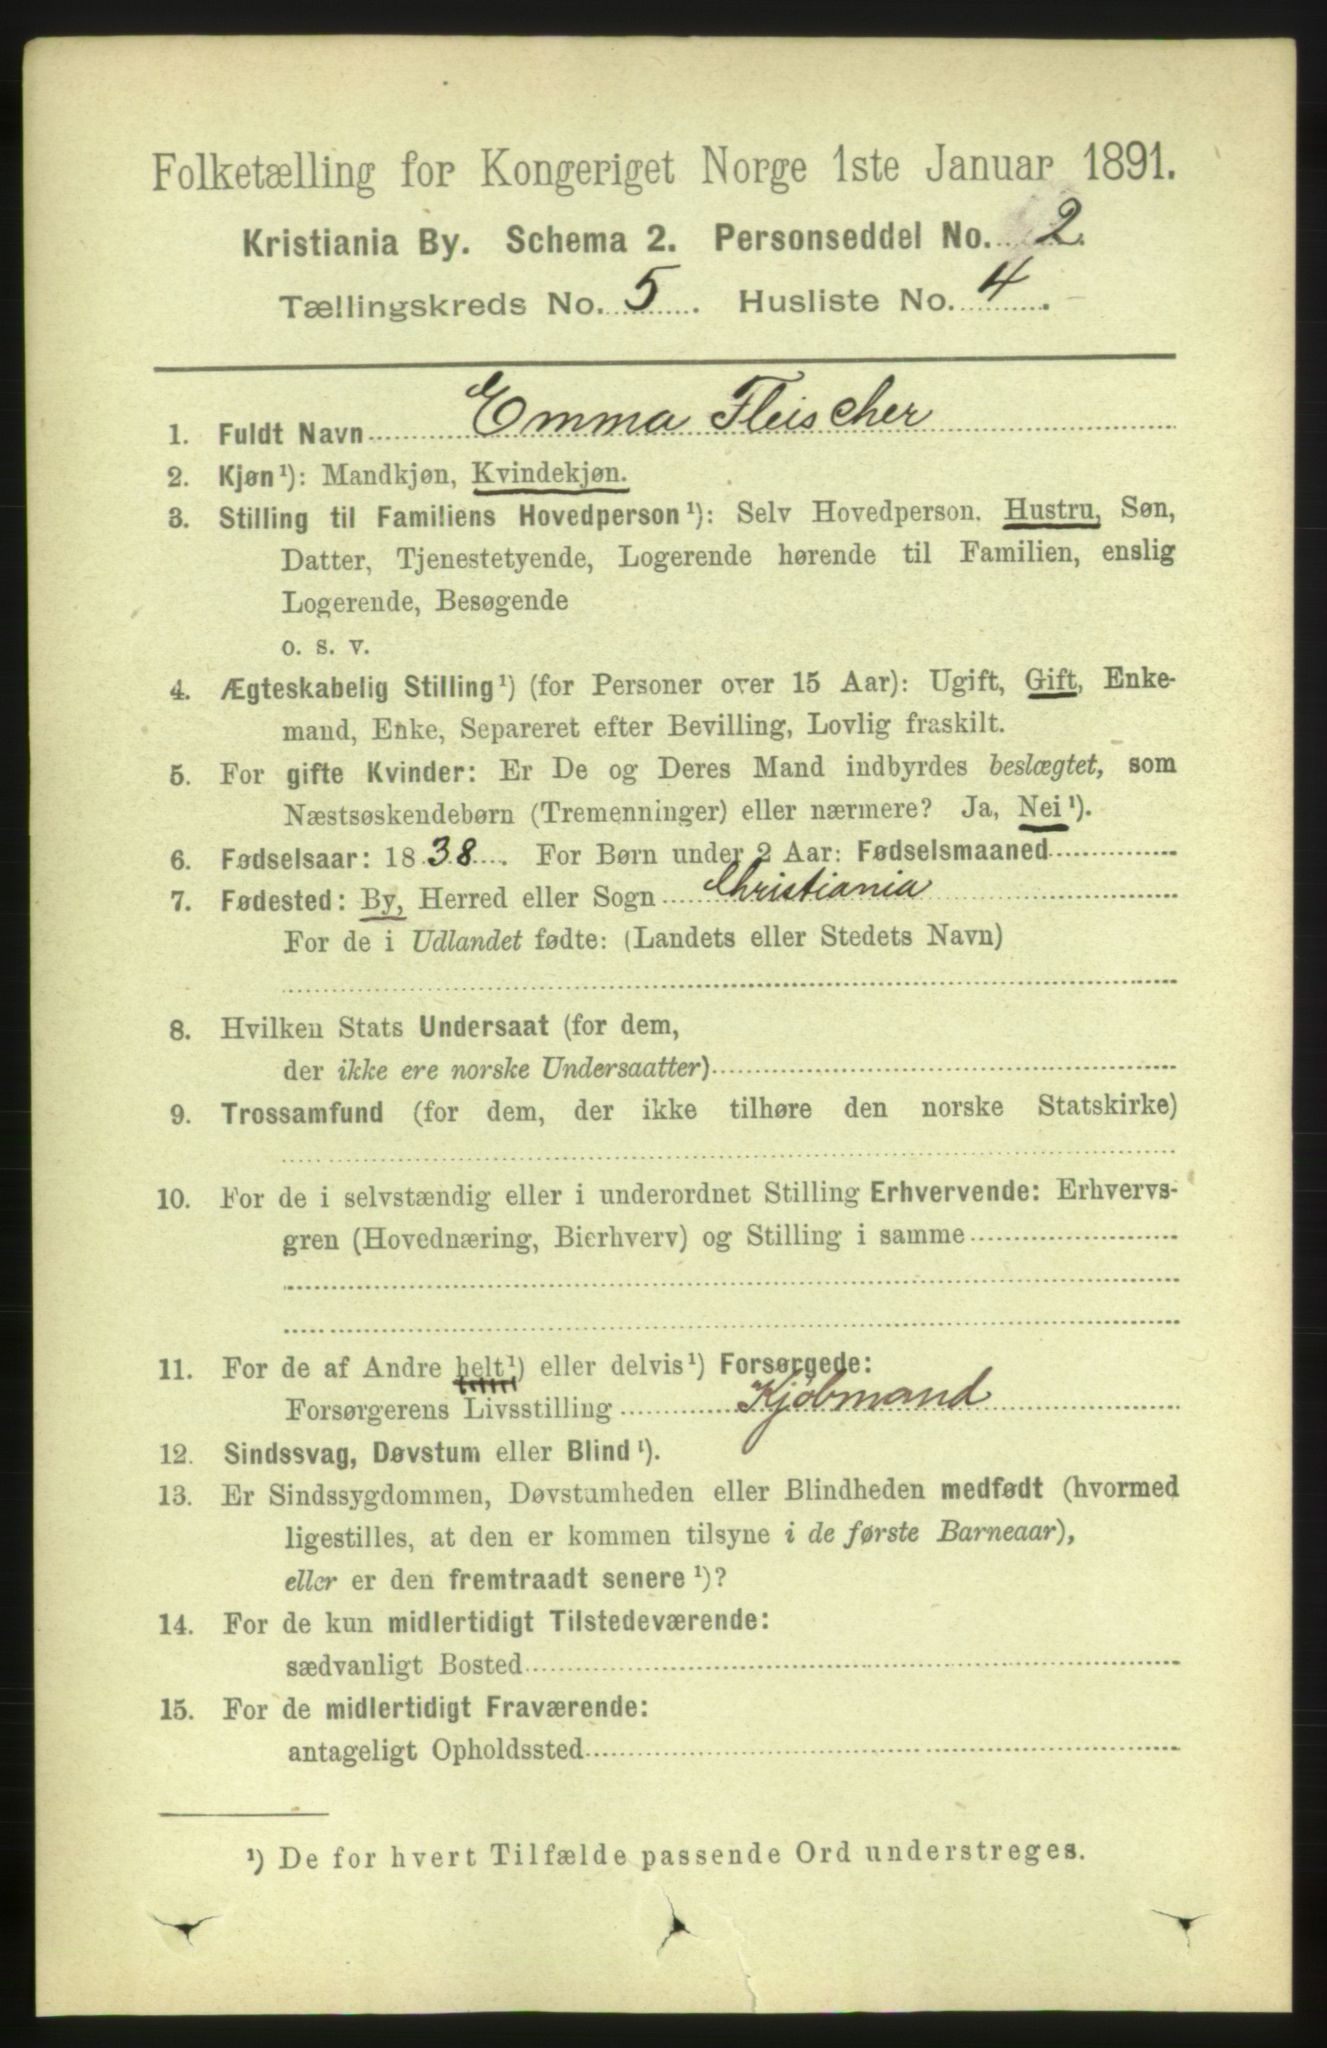 Folketælling for Kongeriget Norge 1ste Januar 1891.
Kristiania By. Schema 2. Personseddel No. 2.
Tællingskreds No. 5. Husliste No. 4.
1. Fuldt Navn Emma Fleischer
2. Kjøn¹): Mandkjøn, Kvindekjøn.
3. Stilling til Familiens Hovedperson¹): Selv Hovedperson. Hustru, Søn,
Datter, Tjenestetyende, Logerende hørende til Familien, enslig
Logerende, Besøgende
o. s. v.
4. Ægteskabelig Stilling¹) (for Personer over 15 Aar): Ugift, Gift, Enke-
mand, Enke, Separeret efter Bevilling, Lovlig fraskilt.
5. For gifte Kvinder: Er De og Deres Mand indbyrdes beslægtet, som
Næstsøskendebørn (Tremenninger) eller nærmere? Ja, Nei¹).
6. Fødselsaar: 1838. For Børn under 2 Aar: Fødselsmaaned
7. Fødested: By, Herred eller Sogn Christiania
For de i Udlandet fødte: (Landets eller Stedets Navn)
8. Hvilken Stats Undersaat (for dem,
der ikke ere norske Undersaatter)
9. Trossamfund (for dem, der ikke tilhøre den norske Statskirke)
10. For de i selvstændig eller i underordnet Stilling Erhvervende: Erhvervs-
gren (Hovednæring, Bierhverv) og Stilling i samme
11. For de af Andre helt¹) eller delvis¹) Forsørgede:
Forsørgerens Livsstilling Kjøbmand
12. Sindssvag, Døvstum eller Blind¹).
13. Er Sindssygdommen, Døvstumheden eller Blindheden medfødt (hvormed
ligestilles, at den er kommen tilsyne i de første Barneaar),
eller er den fremtraadt senere¹)?
14. For de kun midlertidigt Tilstedeværende:
sædvanligt Bosted
15. For de midlertidigt Fraværende:
antageligt Opholdssted
¹) De for hvert Tilfælde passende Ord understreges.